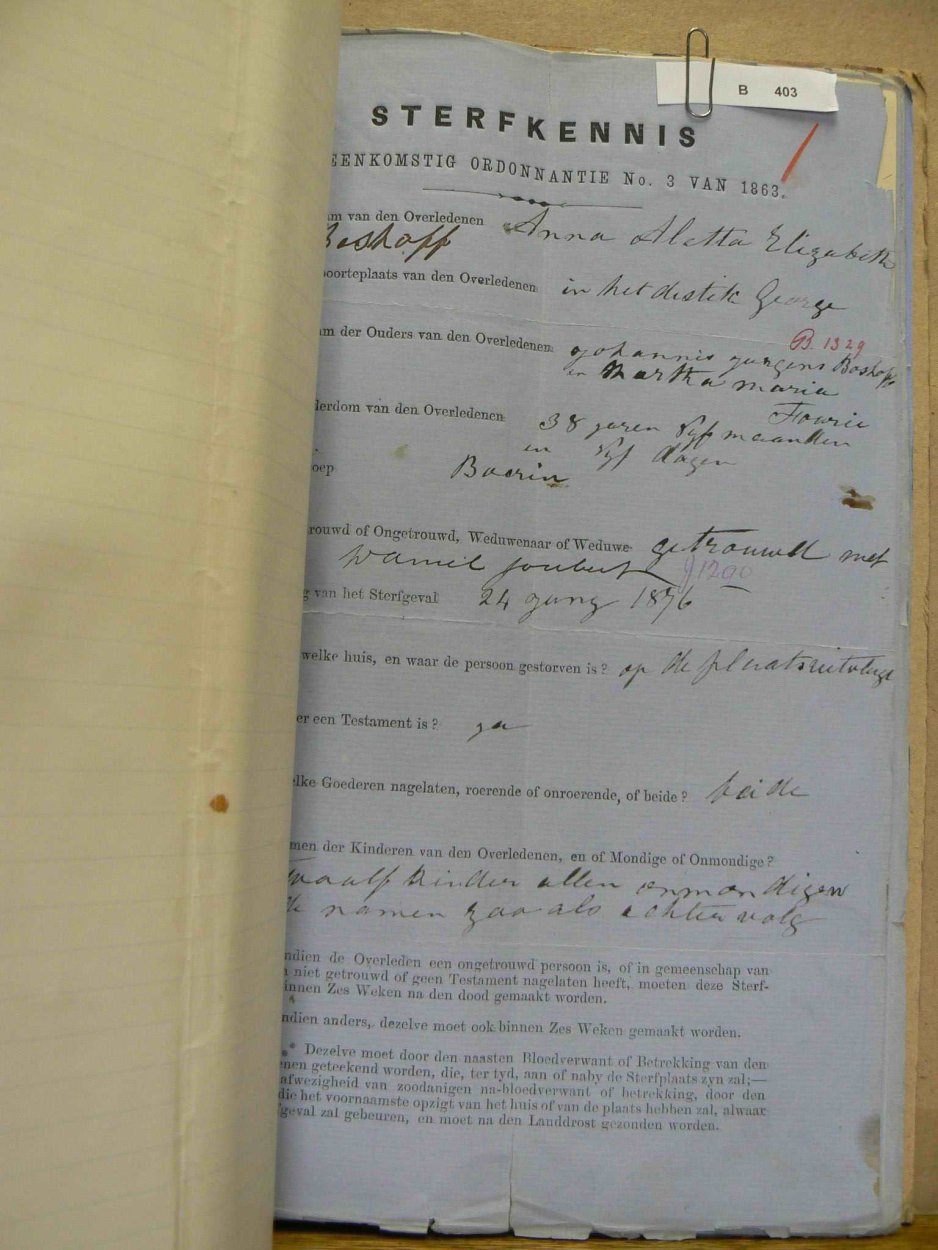 B 403
STERFKENNIS
EENKOMSTIG ORDONNANTIE No. 3 VAN 1863.
am van den Overledenen Anna Aletta Elizabeth
Boshoff
boorteplaats van den Overledenen in het distik George
B 1329
am der Ouders van den Overledenen Johannis Jurgens Boshoff
en Martha Maria
Fourie
derdom van den Overledenen 38 jaren Vyf maanden
en Vyf dagen
oep Boerin
rouwd of Ongetrouwd, Weduwenaar of Weduwe getrouwd met
Daniel Joubert J1290
g van het Sterfgeval 24 1876
welke huis, en waar de persoon gestorven is? op de plaats
er een Testament is? ja
elke Goederen nagelaten, roerende of onroerende, of beide? beide
men der Kinderen van den Overledenen, en of Mondige of Onmondige?
Twaalf kinder allen onmondigen
de namen zoo als achter volg
ndien de Overleden een ongetrouwd persoon is, of in gemeenschap van
n niet getrouwd of geen Testament nagelaten heeft, moeten deze Sterf-
innen Zes Weken na den dood gemaakt worden.
ndien anders, dezelve moet ook binnen Zes Weken gemaakt worden.
* Dezelve moet door den naasten Bloedverwant of Betrekking van den
enen geteekend worden, die, ter tyd, aan of naby de Sterfplaats zyn zal;—
afwezigheid van zoodanigen na-bloedverwant of betrekking, door den
die het voornaamste opzigt van het huis of van de plaats hebben zal, alwaar
geval zal gebeuren, en moet na den Landdrost gezonden worden.